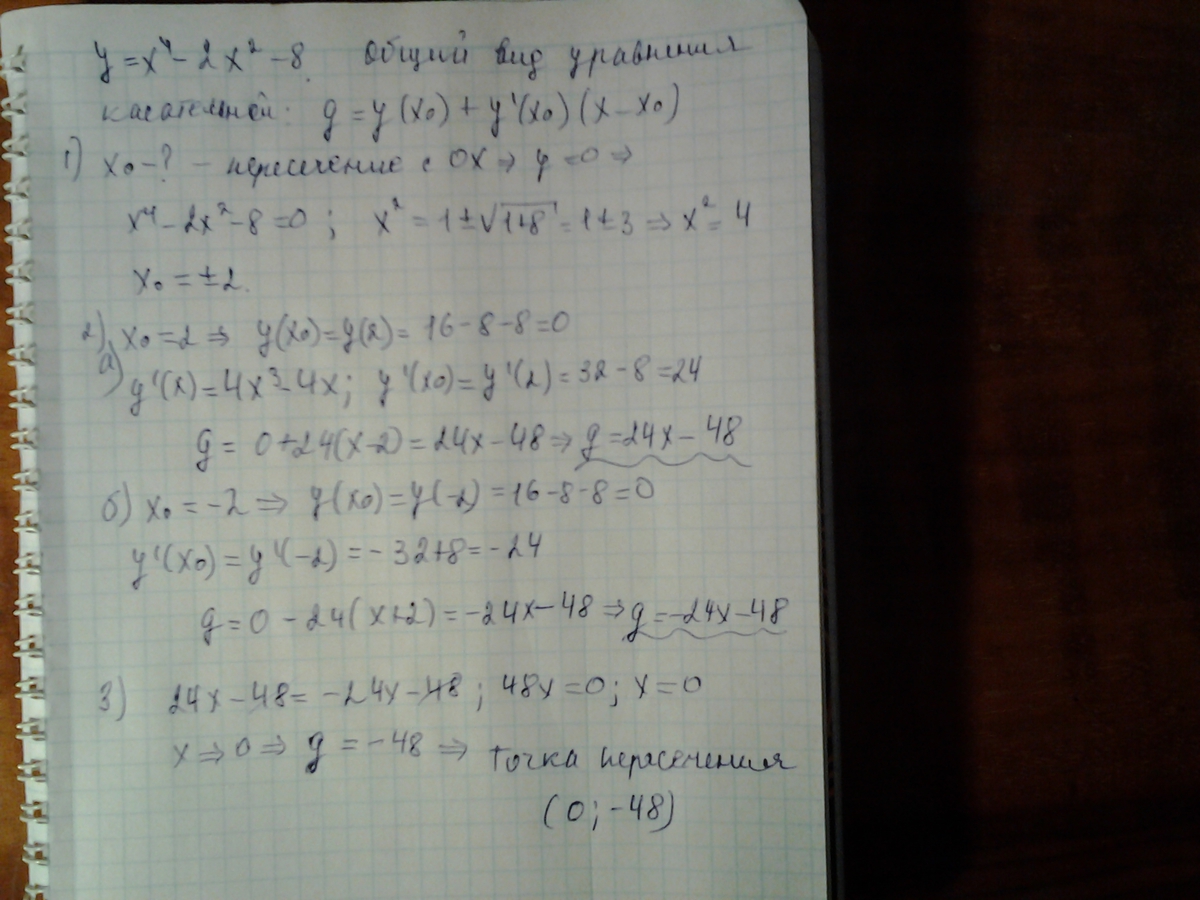 y = x⁴ - 2x² - 8. Общий вид уравнения
касательной: g = y(x₀) + y'(x₀)(x - x₀)
1) x₀ - ? - пересечение с OX ⇒ y = 0 ⇒
x⁴ - 2x² - 8 = 0 ; x² = 1 ± √1+8 = 1 ± 3 ⇒ x² = 4
x₀ = ±2.
2) x₀ = 2 ⇒ y(x₀) = y(2) = 16 - 8 - 8 = 0
а) y'(x) = 4x³ - 4x ; y'(x₀) = y'(2) = 32 - 8 = 24
g = 0 + 24(x - 2) = 24x - 48 ⇒ g = 24x - 48
б) x₀ = -2 ⇒ y(x₀) = y(-2) = 16 - 8 - 8 = 0
y'(x₀) = y'(-2) = -32 + 8 = -24
g = 0 - 24(x + 2) = -24x - 48 ⇒ g = -24x - 48
3) 24x - 48 = -24x - 48 ; 48x = 0 ; x = 0
x ⇒ 0 ⇒ g = -48 ⇒ точка пересечения
(0 ; -48)